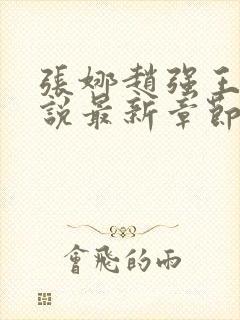 張娜趙强王
說最新章節
會飛的雨